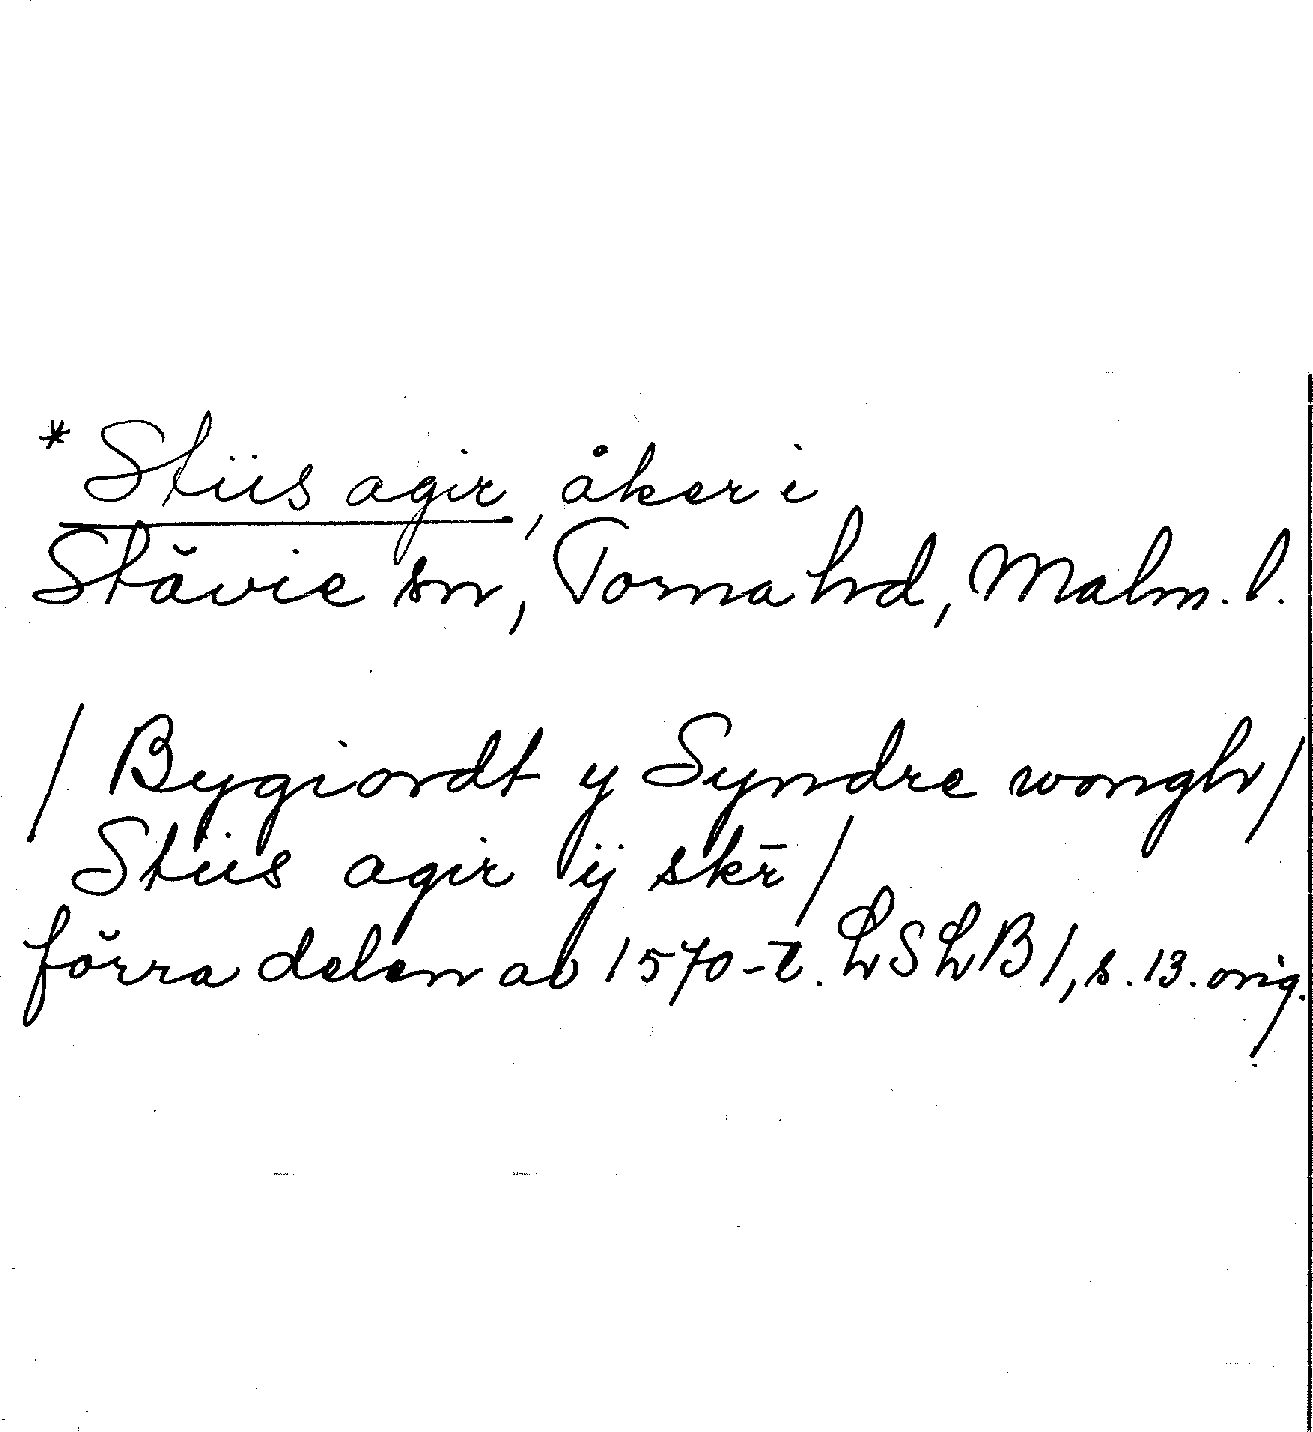 * Stiis agir, åker i
Stävie sn, Torna hd, Malm. l.
/ Bygiordt y Syndre wongh /
Stiis agir ij skr̄ /
förra delen av 1570-t. LSLB 1, s. 13. orig.